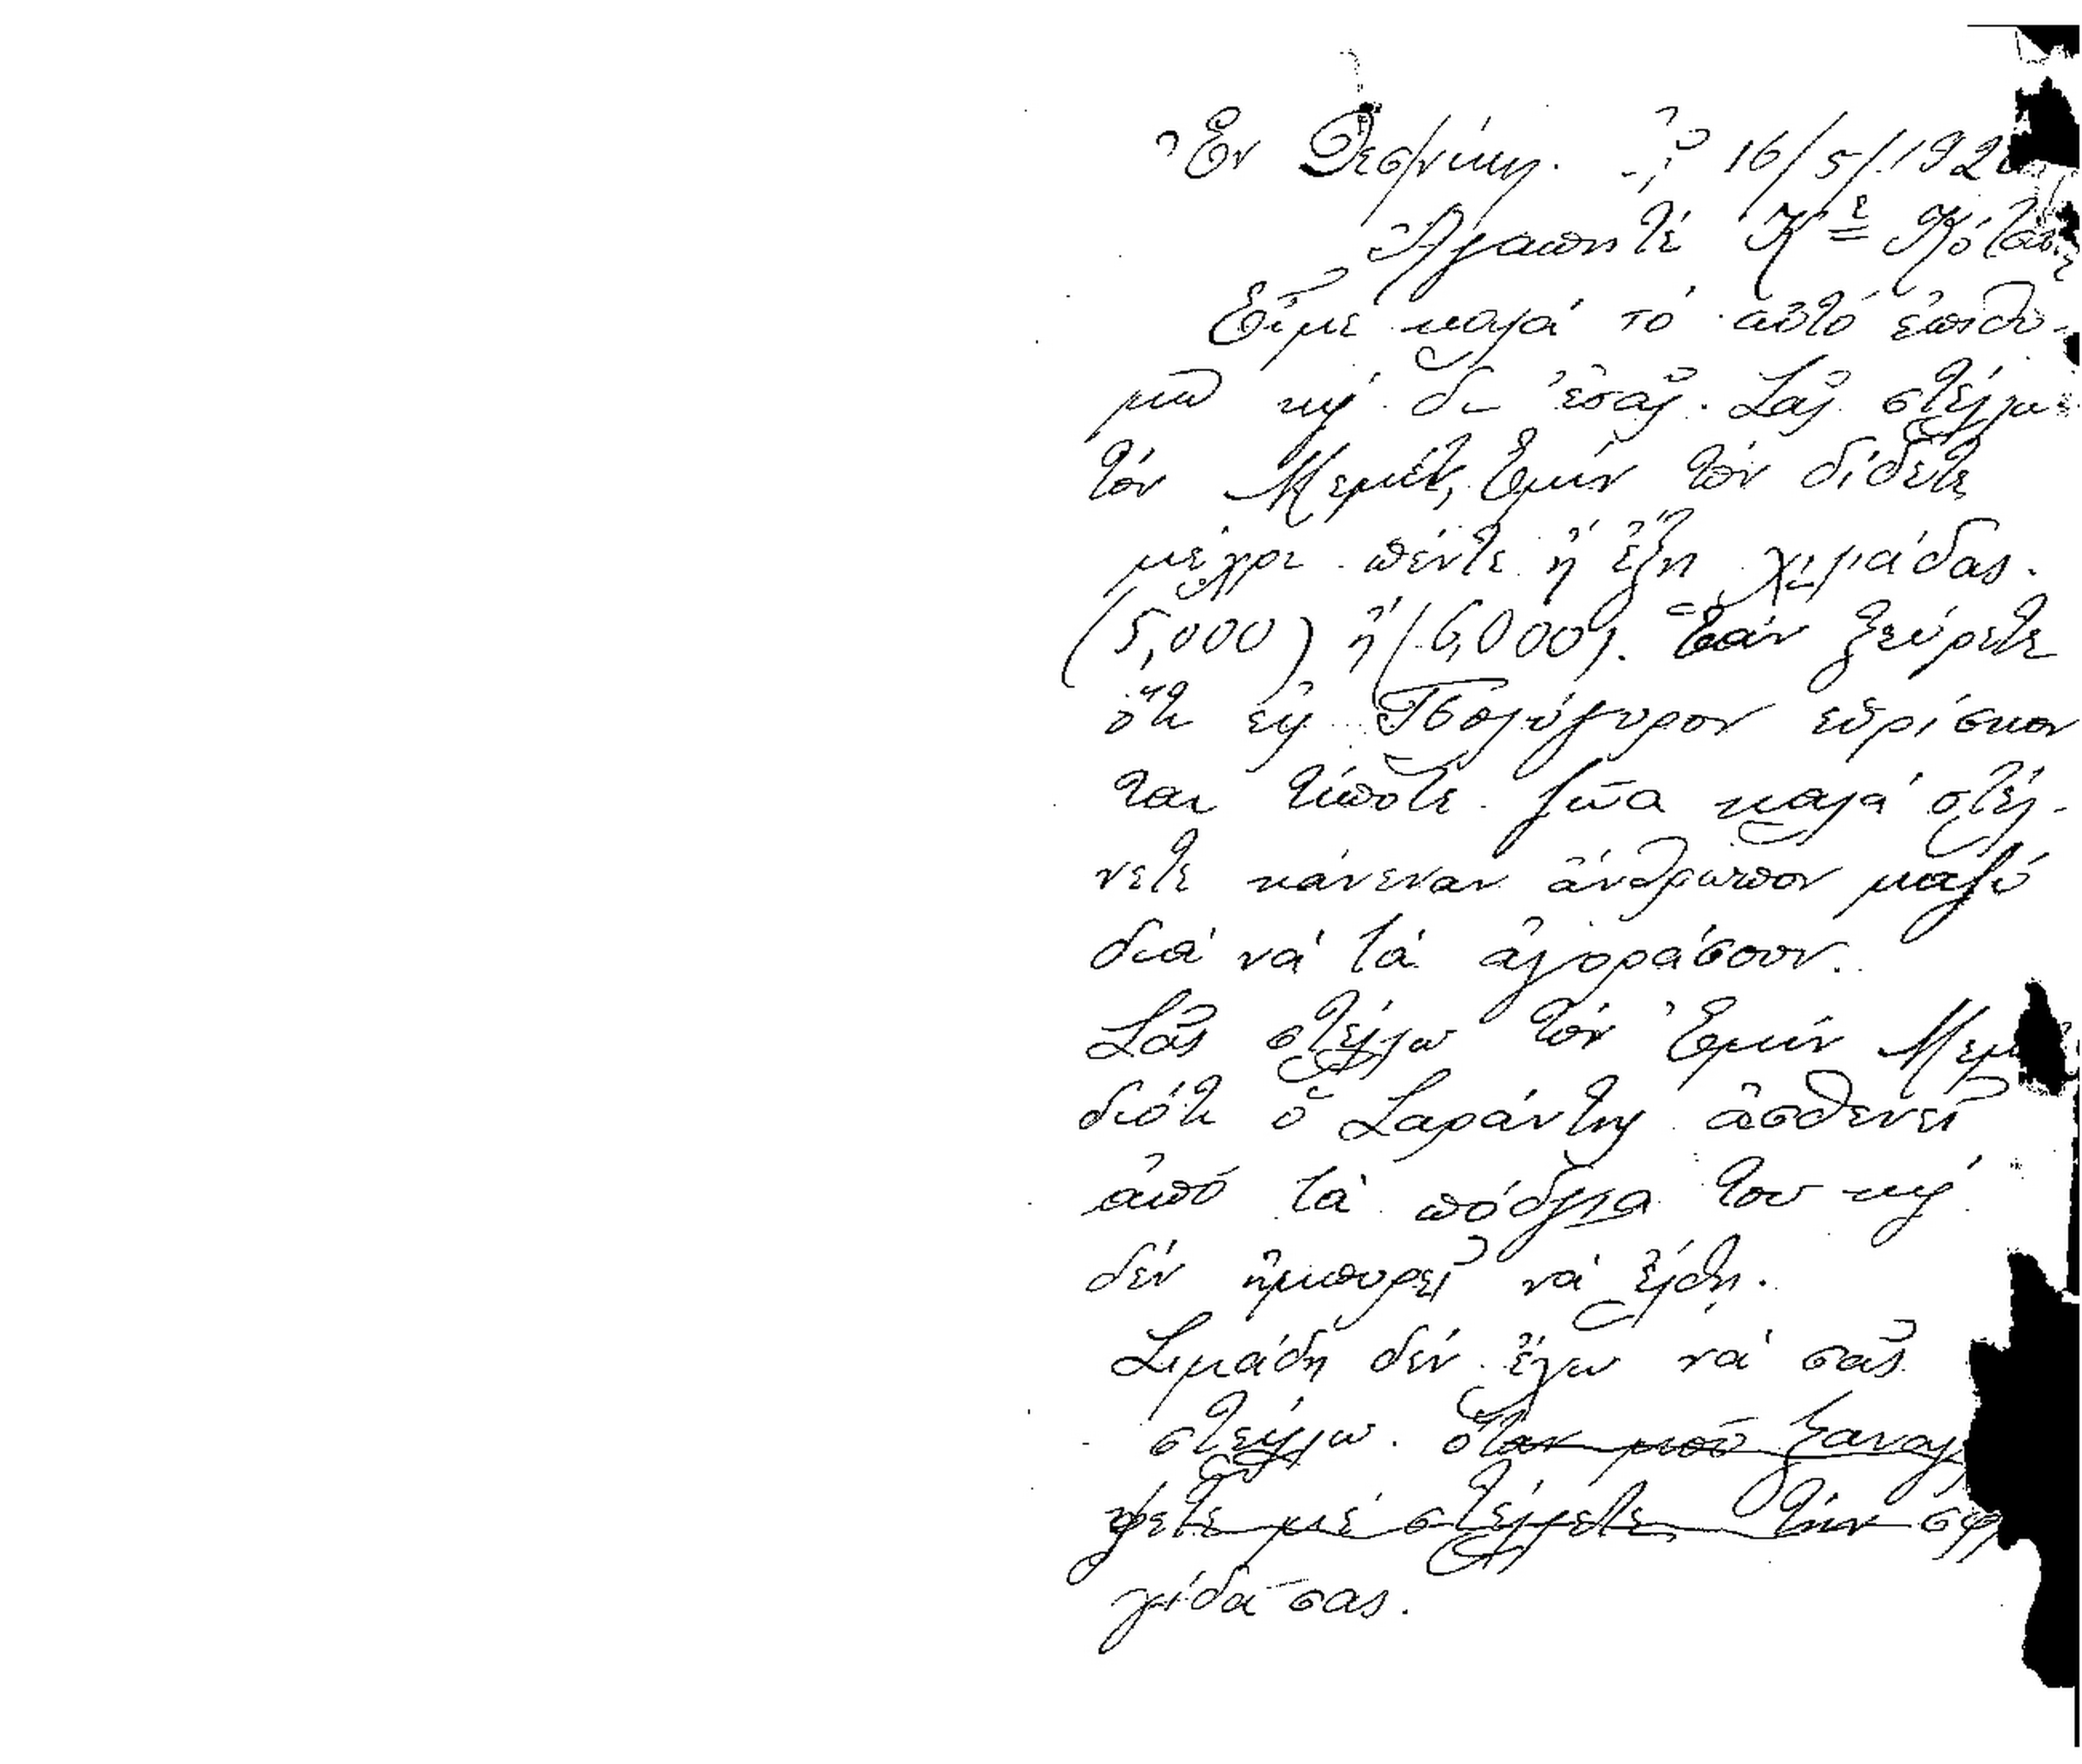 Ἐν Θεσ/νίκῃ. τῇ 16/5/192
Ἀγαπητέ Κε Κότα
Εἶμε καλά τό αὐτό ἐπιθυ-
μῶ κῃ δι' ἐσᾶς. Σᾶς στέλλω
τόν Μεμέτ, Ἐμίν τόν δίδετε
μέχρι πέντε ἤ ἕξη χιλιάδας.
(5,000) ἤ (6,000). Ἐάν ξεύρετε
ὅτι εἰς Πολύγυρον εὑρίσκον
ται τίποτε ζῶα καλά στέλ-
νετε κάνεναν ἄνθρωπον μαζύ
διά νά τά ἀγοράσουν.
Σᾶς στέλλω τόν Ἐμίν Μεμ
διότι ὁ Σαράντης ἀσθενεῖ
ἀπό τά πόδγια του κῃ
δέν ἠμπορεῖ νά ἔλθῃ.
Σιμάδη δέν ἔχω νά σᾶς
στείλλω. ὅταν μοῦ ξαναγ
ψετε μέ στέλλετε τήν σφρ
γίδα σας.